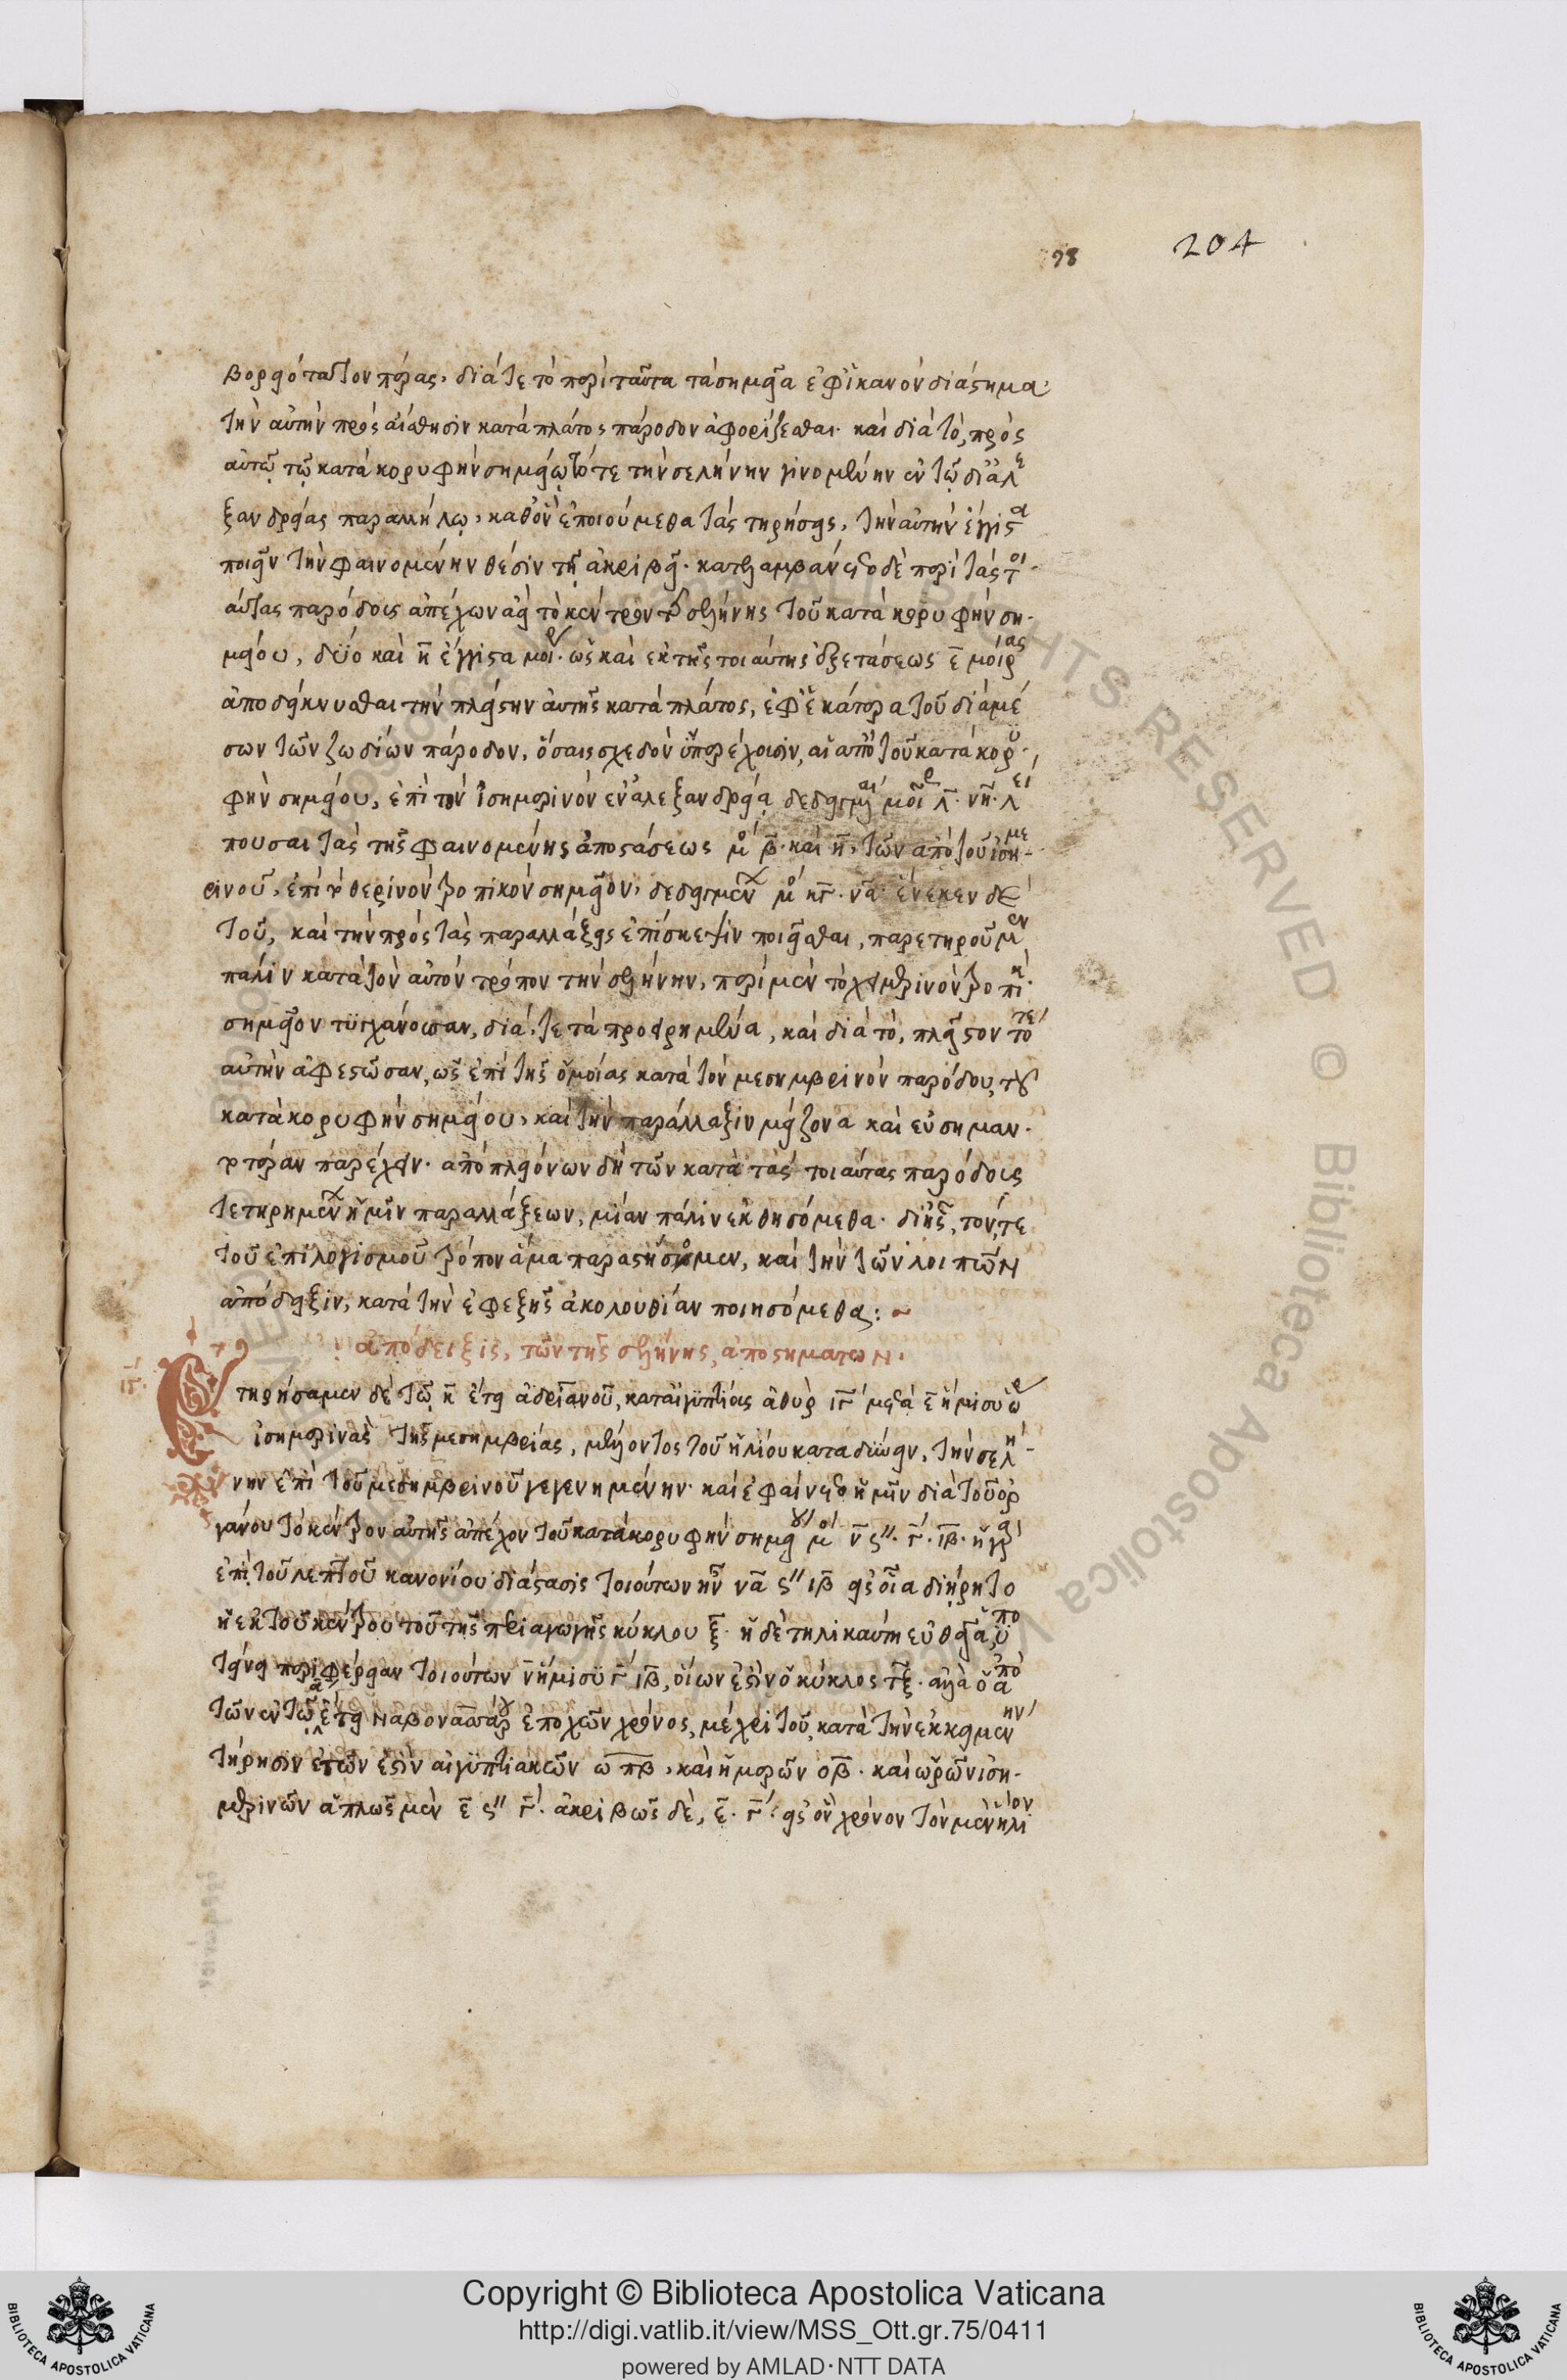 98 204
βορειότατον πέρας, διά τε τὸ περὶ ταῦτα τὰ σημεῖα ἐφ' ἱκανὸν διάστημα
τὴν αὐτὴν πρὸς αἴσθησιν κατὰ πλάτος πάροδον ἀφορίζεσθαι· καὶ διὰ τὸ, πρὸς
αὐτῷ τῷ κατὰ κορυφὴν σημείῳ τότε τὴν σελήνην γινομένην ἐν τῷ δι' ἀλε
ξανδρείας παραλλήλῳ, καθ' ὃν ἐποιούμεθα τὰς τηρήσεις, τὴν αὐτὴν ἔγγιστα
ποιεῖν τὴν φαινομένην θέσιν τῇ ἀκριβεῖ· κατελαμβάνετο δὲ περὶ τὰς τοι
αύτας παρόδους ἀπέχων ἀεὶ τὸ κέντρον τῆς σελήνης τοῦ κατὰ κορυφὴν ση
μείου, δύο καὶ η̅ ἔγγιστα μοι· ὡς καὶ ἐκ τῆς τοιαύτης ἐξετάσεως ε̅ μοίρας
ἀποδείκνυσθαι τὴν πλείστην αὐτῆς κατὰ πλάτος, ἐφ' ἑκάτερα τοῦ διὰ μέ
σων τῶν ζωδίων πάροδον, ὅσαις σχεδὸν ὑπερέχουσιν, αἱ ἀπὸ τοῦ κατὰ κορυ
φὴν σημείου, ἐπὶ τὸν ἰσημερινὸν ἐν ἀλεξανδρείᾳ δεδειγμέναι μοῖ λ̅· νη̅· λεί
πουσαι τὰς τῆς φαινομένης ἀποστάσεως μο β̅· καὶ η̅, τῶν ἀπὸ τοῦ ἰσημε
ρινοῦ, ἐπὶ τὸ θερινὸν τροπικὸν σημεῖον, δεδειγμένων μο κγ̅· να̅· ἕνεκεν δὲ
τοῦ, καὶ τὴν πρὸς τὰς παραλλάξεις ἐπίσκεψιν ποιεῖσθαι, παρετηροῦμεν
πάλιν κατὰ τὸν αὐτὸν τρόπον τὴν σελήνην, περὶ μὲν τὸ χειμερινὸν τροπικὸ
σημεῖον τυγχάνουσαν, διά τε τὰ προειρημένα, καὶ διὰ τὸ, πλεῖστον τότε
αὐτὴν ἀφεστῶσαν, ὡς ἐπὶ τῆς ὁμοίας κατὰ τὸν μεσημβρινὸν παρόδου, τοῦ
κατὰ κορυφὴν σημείου, καὶ τὴν παράλλαξιν μείζονα καὶ εὐσημαν
τοτέραν παρέχειν· ἀπὸ πλειόνων δὴ τῶν κατὰ τὰς τοιαύτας παρόδους
τετηρημένων ἡμῖν παραλλάξεων, μίαν πάλιν ἐκθησόμεθα· δι' ἧς, τόν τε
τοῦ ἐπιλογισμοῦ τρόπον ἅμα παραστήσομεν, καὶ τὴν τῶν λοιπῶν
ἀπόδειξιν, κατὰ τὴν ἐφεξῆς ἀκολουθίαν ποιησόμεθα: ~
ἀπόδειξις, τῶν τῆς σελήνης, ἀποστημάτων.
ιγ Ἐτηρήσαμεν δὲ τῷ κ̅ ἔτει ἀδριανοῦ, κατ' αἰγυπτίους ἀθὺρ ιγ̅ μετὰ ε̅ ἥμισυ ὥρ
ἰσημερινὰς τῆς μεσημβρίας, μέλλοντος τοῦ ἡλίου καταδύειν, τὴν σελή
νην ἐπὶ τοῦ μεσημβρινοῦ γεγενημένην· καὶ ἐφαίνετο ἡμῖν διὰ τοῦ ὀρ
γάνου τὸ κέντρον αὐτῆς ἀπέχον τοῦ κατὰ κορυφὴν σημείου μο ν̅ ϛ''· γ̅'· ιβ̅· ἡ γὰρ
ἐπὶ τοῦ λεπτοῦ κανονίου διάστασις τοιούτων ἦν να̅ ϛ'' ιβ̅ εἰς οἷα διῄρητο
ἡ ἐκ τοῦ κέντρου τοῦ τῆς περιαγωγῆς κύκλου ξ̅· ἡ δὲ τηλικαύτη εὐθεῖα, ὑπο
τείνει περιφέρειαν τοιούτων ν̅ ἥμισυ γ̅' ιβ̅, οἵων ἐστὶν ὁ κύκλος τξ̅· ἀλλὰ ὁ ἀπὸ
τῶν ἐν τῷ α ἔτει ναβονασσάρου ἐποχῶν χρόνος, μέχρι τοῦ, κατὰ τὴν ἐκκειμένην
τήρησιν ἐτῶν ἐστὶν αἰγυπτιακῶν ωπβ̅, καὶ ἡμερῶν οβ̅· καὶ ὡρῶν ἰση
μερινῶν ἁπλῶς μὲν ε̅ ϛ'' γ̅'· ἀκριβῶς δὲ, ε̅· γ̅'· εἰς ὃν χρόνον τὸν μὲν ἥλιον
Copyright © Biblioteca Apostolica Vaticana
http://digi.vatlib.it/view/MSS_Ott.gr.75/0411
powered by AMLAD·NTT DATA